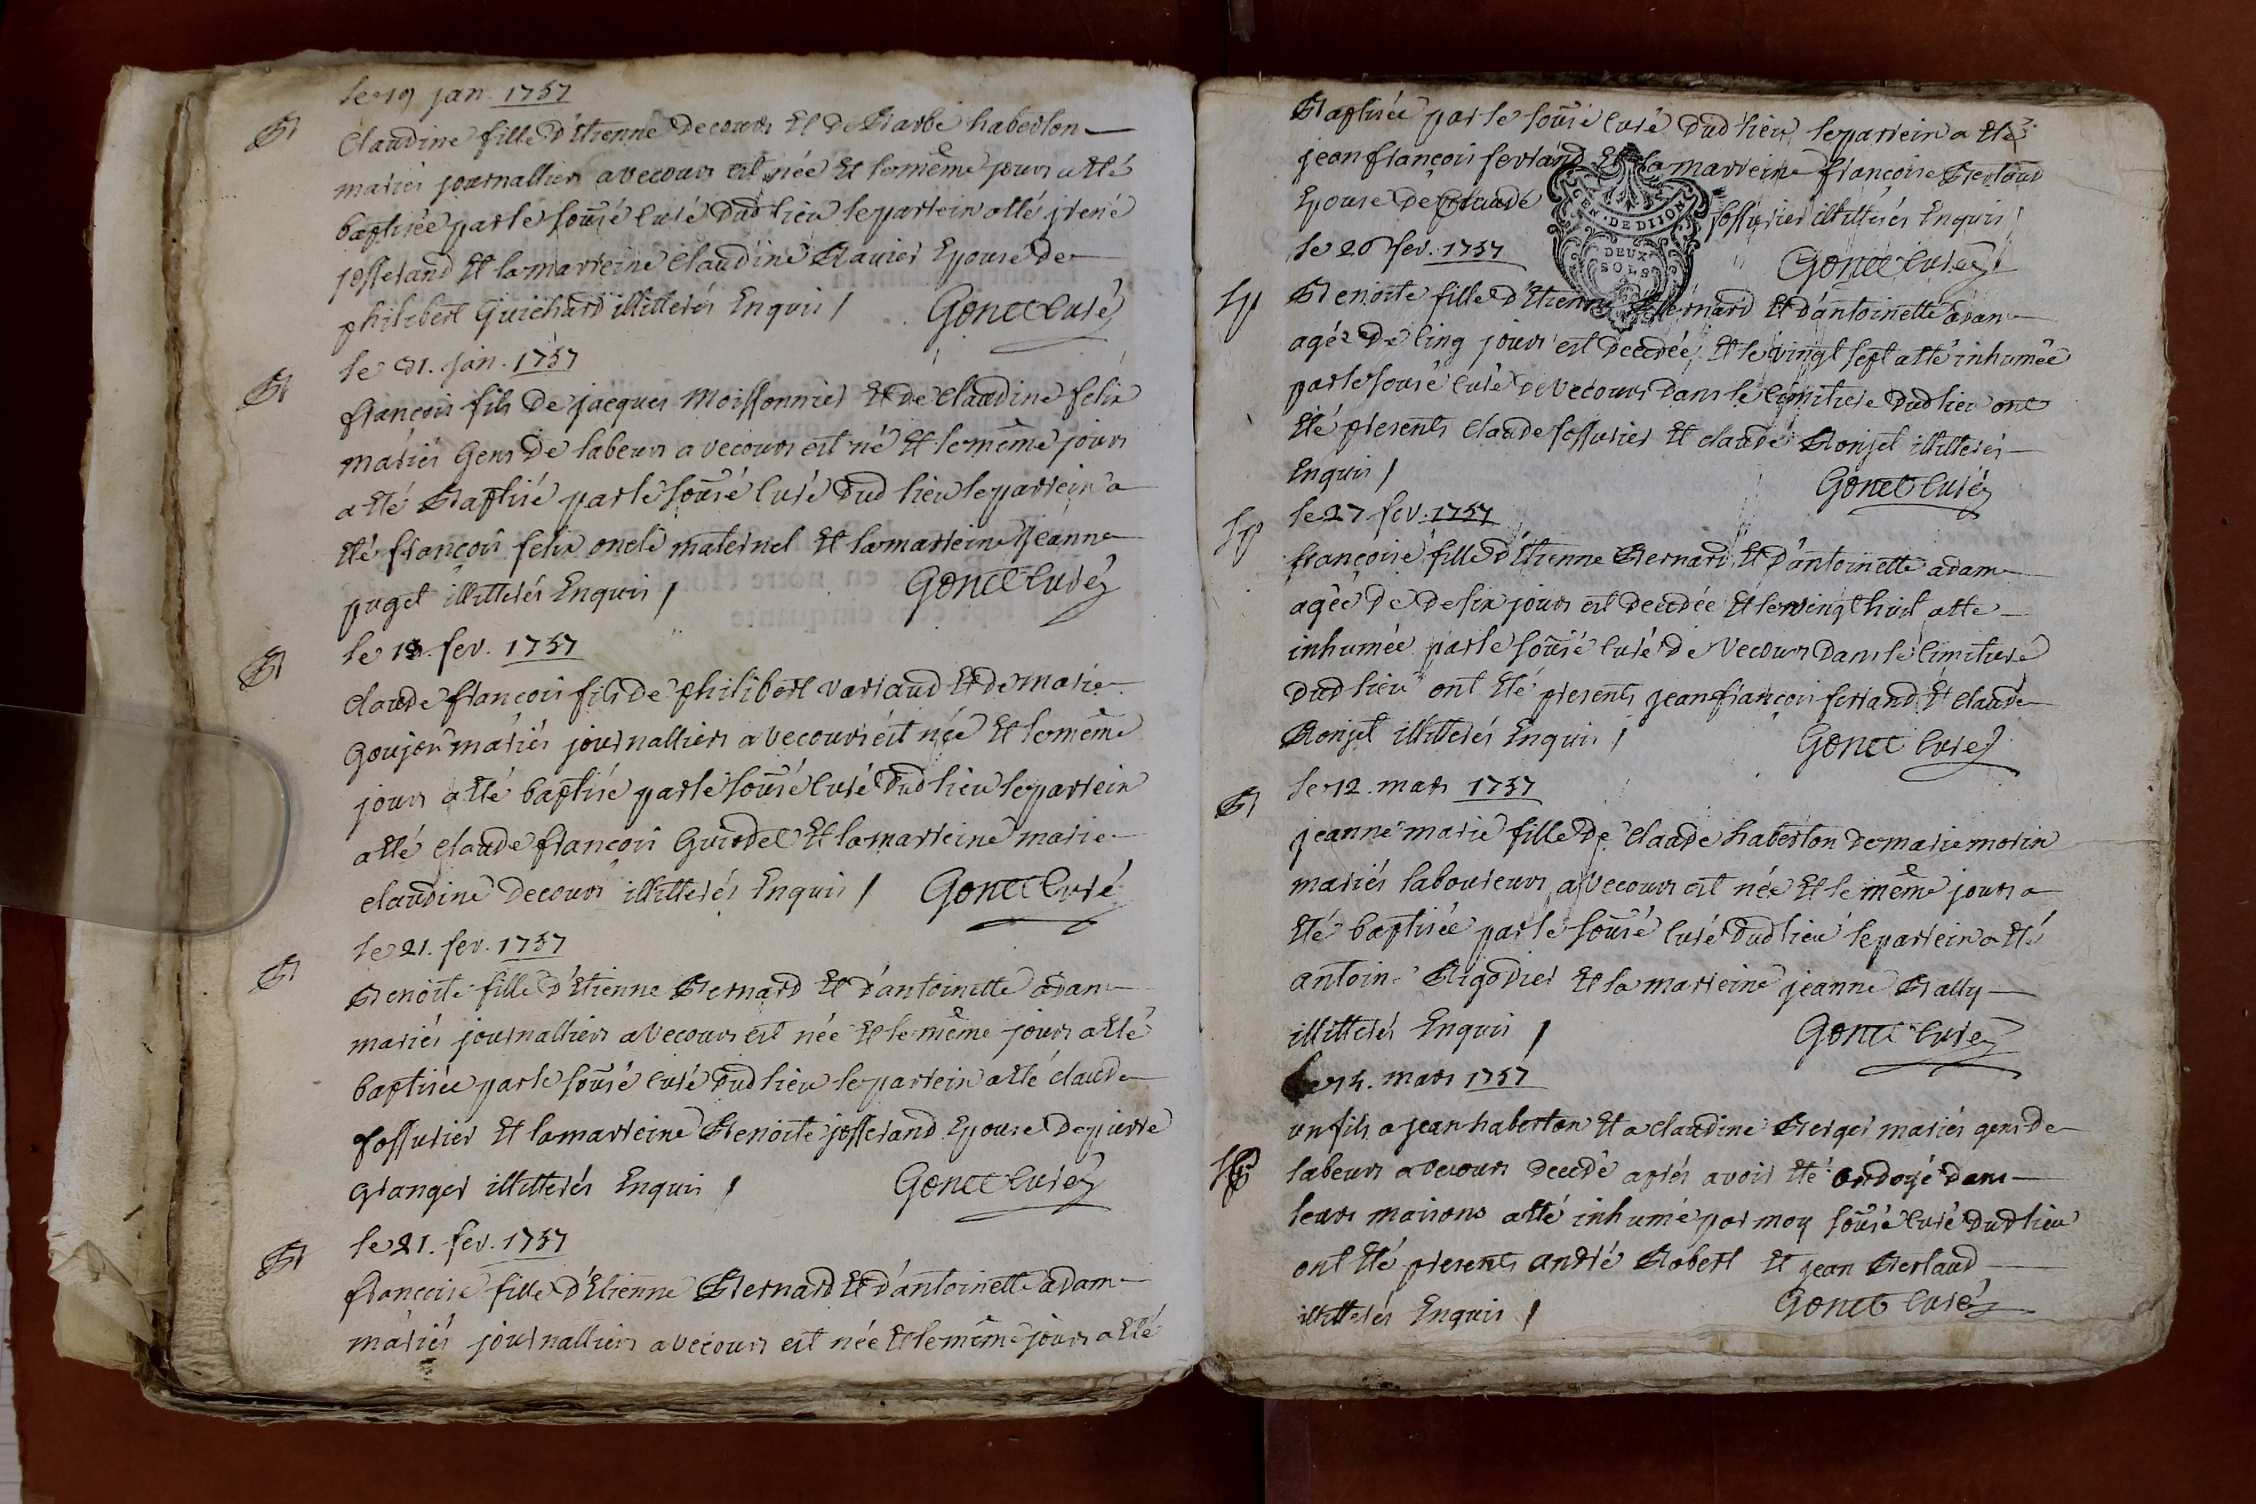 le 19 jan. 1757
B
Claudine fille d'Etienne Decours Et de Barbe haberton
mariés journalliers a vecours est née Et le même jours a Eté
baptisée par le sousé Curé dud lieu le parrein a Eté pierre
josserand Et la marreine Claudine Ravier Epouse de
philibert Guichard illitterés Enquis / Gonet Curé
le 31. jan. 1757
B
françois fils de jacques Moissonnier Et de Claudine felix
mariés Gens de labeurs a vecours est né Et le même jours
a Eté Baptisé par le sousé Curé dud lieu le parrein a
Eté françois felix oncle maternel Et la marreine jeanne
puget illitterés Enquis / Gonet Curé
le 13. fev. 1757
B
claude françois fils de philibert variaud Et de marie
Goujon mariés journalliers a vecours est née Et le même
jours a Eté baptisé par le sousé Curé dud lieu le parrein
a Eté claude françois Guirdet Et la marreine marie
claudine Decours illitterés Enquis / Gonet Curé
le 21. fev. 1757
B
Benoite fille d'Etienne Bernard Et d'antoinette adam
mariés journalliers a vecours est née Et le même jours a Eté
baptisée par le sousé curé dud lieu le parrein a Eté claude
fossurier Et la marreine Benoite josserand Epouse de pierre
granger illitterés Enquis / Gonet Curé
le 21. fev. 1757
B
françoise fille d'Etienne Bernard Et d'antoinette adam
mariés journalliers a vecours est née Et le même jours a Eté
Baptisée par le sousé Curé dud lieu le parrein a Eté
jean françois ferrand Et la marreine françoise Bertaud
Epouse de Claude fossurier illitterés Enquis /
GEN. DE DIJON
DEUX
SOLS
le 26 fev. 1757 Gonet Curé
Sp
Benoite fille d'Etienne Bernard Et d'antoinette adam
agée de Cinq jours est decedée Et le vingt sept a Eté inhumée
par le sousé Curé de Vecours dans le Cimitiere dud lieu ont
Eté presents claude fossurier Et claude Bonjet illitterés
Enquis / Gonet Curé
le 27 fev. 1757
Sp
françoise fille d'Etienne Bernard Et d'antoinette adam
agée de de six jours est decedée Et le vingt huit a Eté
inhumée par le sousé Curé de Vecours dans le Cimitiere
dud lieu ont Eté presents jean françois ferrand Et claude
Bonjet illitterés Enquis / Gonet Curé
le 12. mars 1757
B
jeanne marie fille de claude haberton de marie morin
mariés laboureurs a vecours est née Et le même jours a
Eté baptisée par le sousé Curé dud lieu le parrein a Eté
antoine Rigodier Et la marreine jeanne Bally
illitterés Enquis / Gonet Curé
mars 1757
un fils a jean haberton Et a claudine Berger mariés gens de
labeurs a vecours decedé aprés avoir Eté ondoyé dans
leurs maisons a Eté inhumé par moy sousé Curé dud lieu
ont Eté presents andré Robert Et jean Bertaud
illitterés Enquis / Gonet Curé